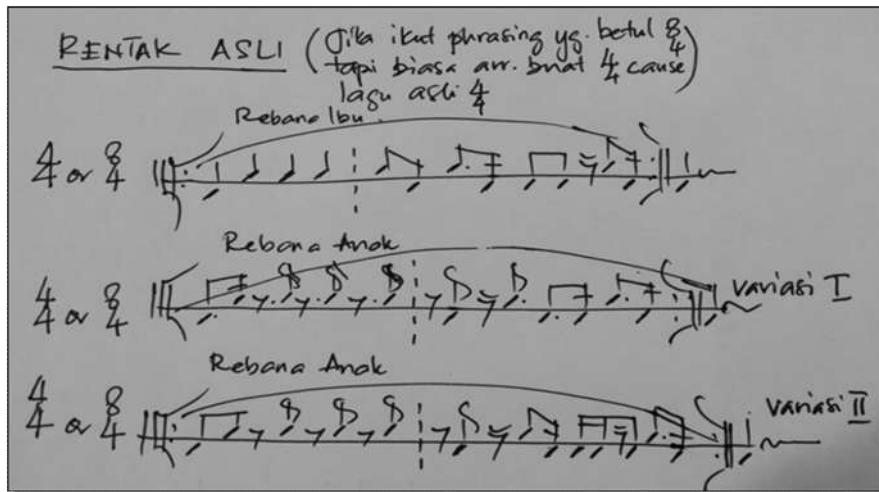 RENTAK ASLI (Jika ikut phrasing yg. betul 8/4
tapi biasa arr. buat 4/4 cause)
lagu asli 4/4
Rebana Ibu
4/4 or 8/4
Rebana Anak
4/4 or 8/4 Variasi I
Rebana Anak
4/4 or 8/4 Variasi II